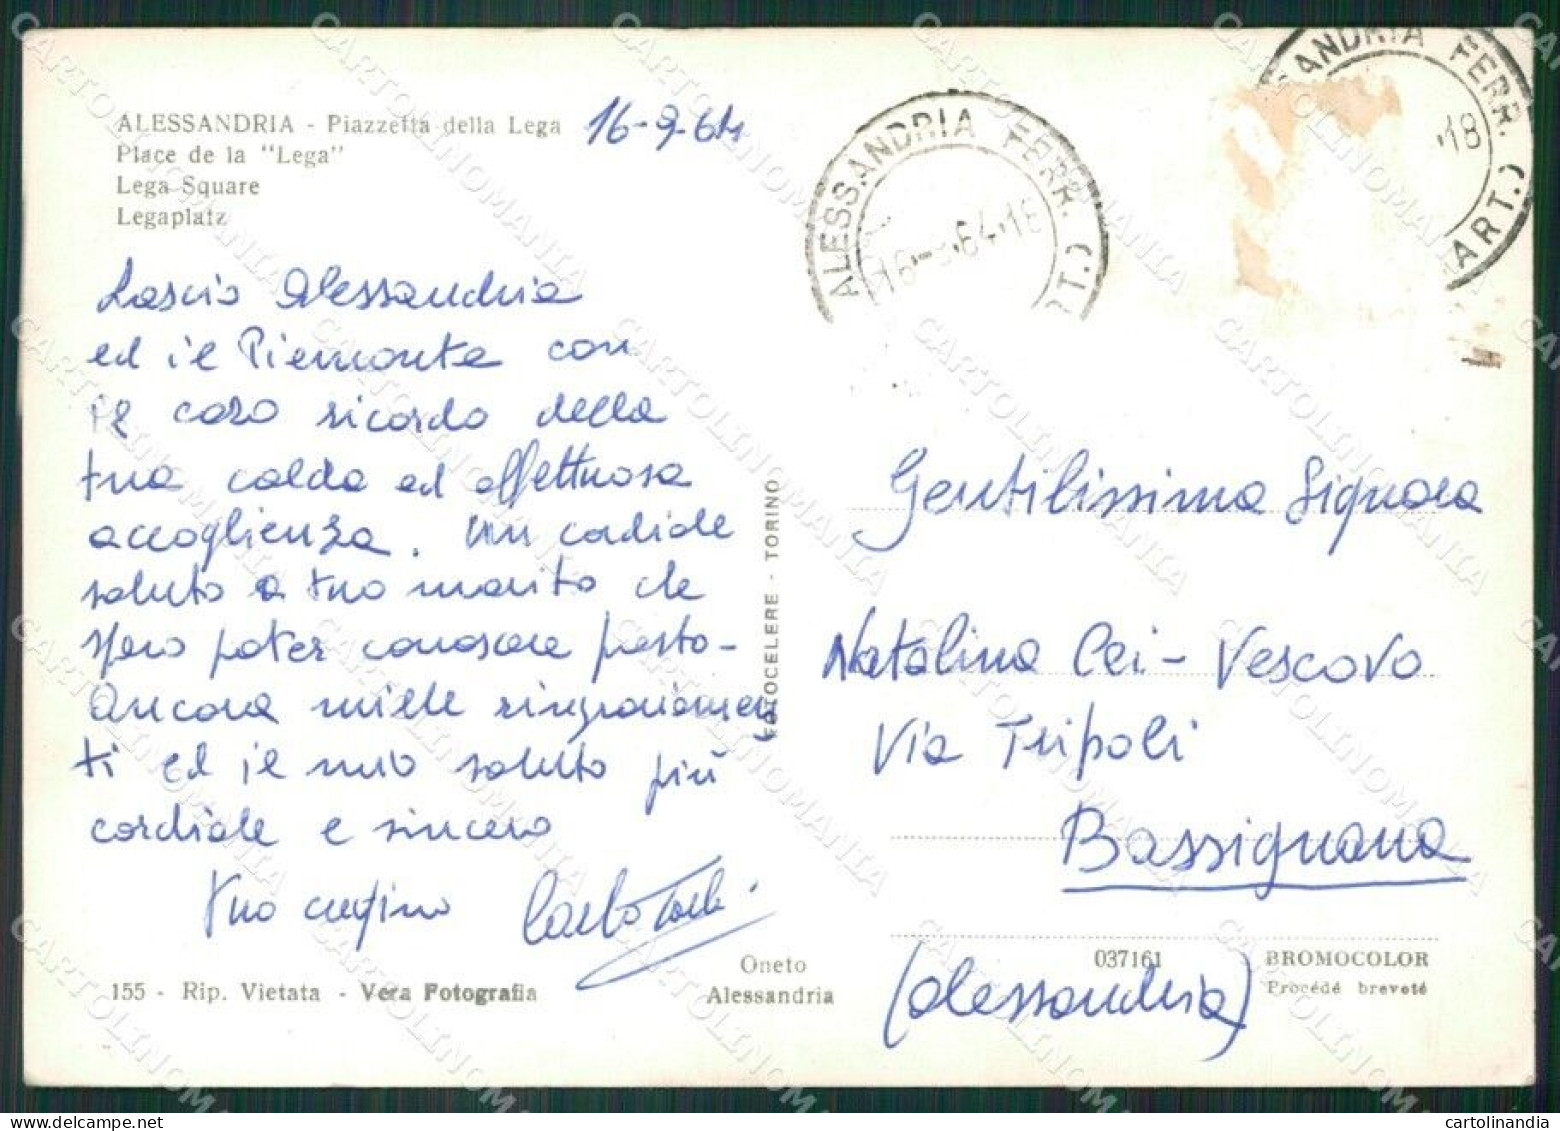 ALESSANDRIA - Piazzetta della Lega
Place de la "Lega"
Lega Square
Legaplatz
16-9-64
ALESSANDRIA FERR.
16- .64.18
ANDRIA FERR.
ART.
.18
Lascio Alessandria
ed il Piemonte con
il caro ricordo della
tua calda ed affettuosa
accoglienza. Un cordiale
saluto a tuo marito che
spero poter conoscere presto-
Ancora mille ringraziamen
ti ed il mio saluto più
cordiale e sincero
tuo cugino
155 - Rip. Vietata - Vera Fotografia
Oneto
Alessandria
FOTOCELERE - TORINO
Gentilissima Signora
Natalina Cei - Vescovo
Via Tripoli
Bassignana
(Alessandria)
037161
BROMOCOLOR
Procédé breveté
CARTOLINOMANIA
cartolinandia